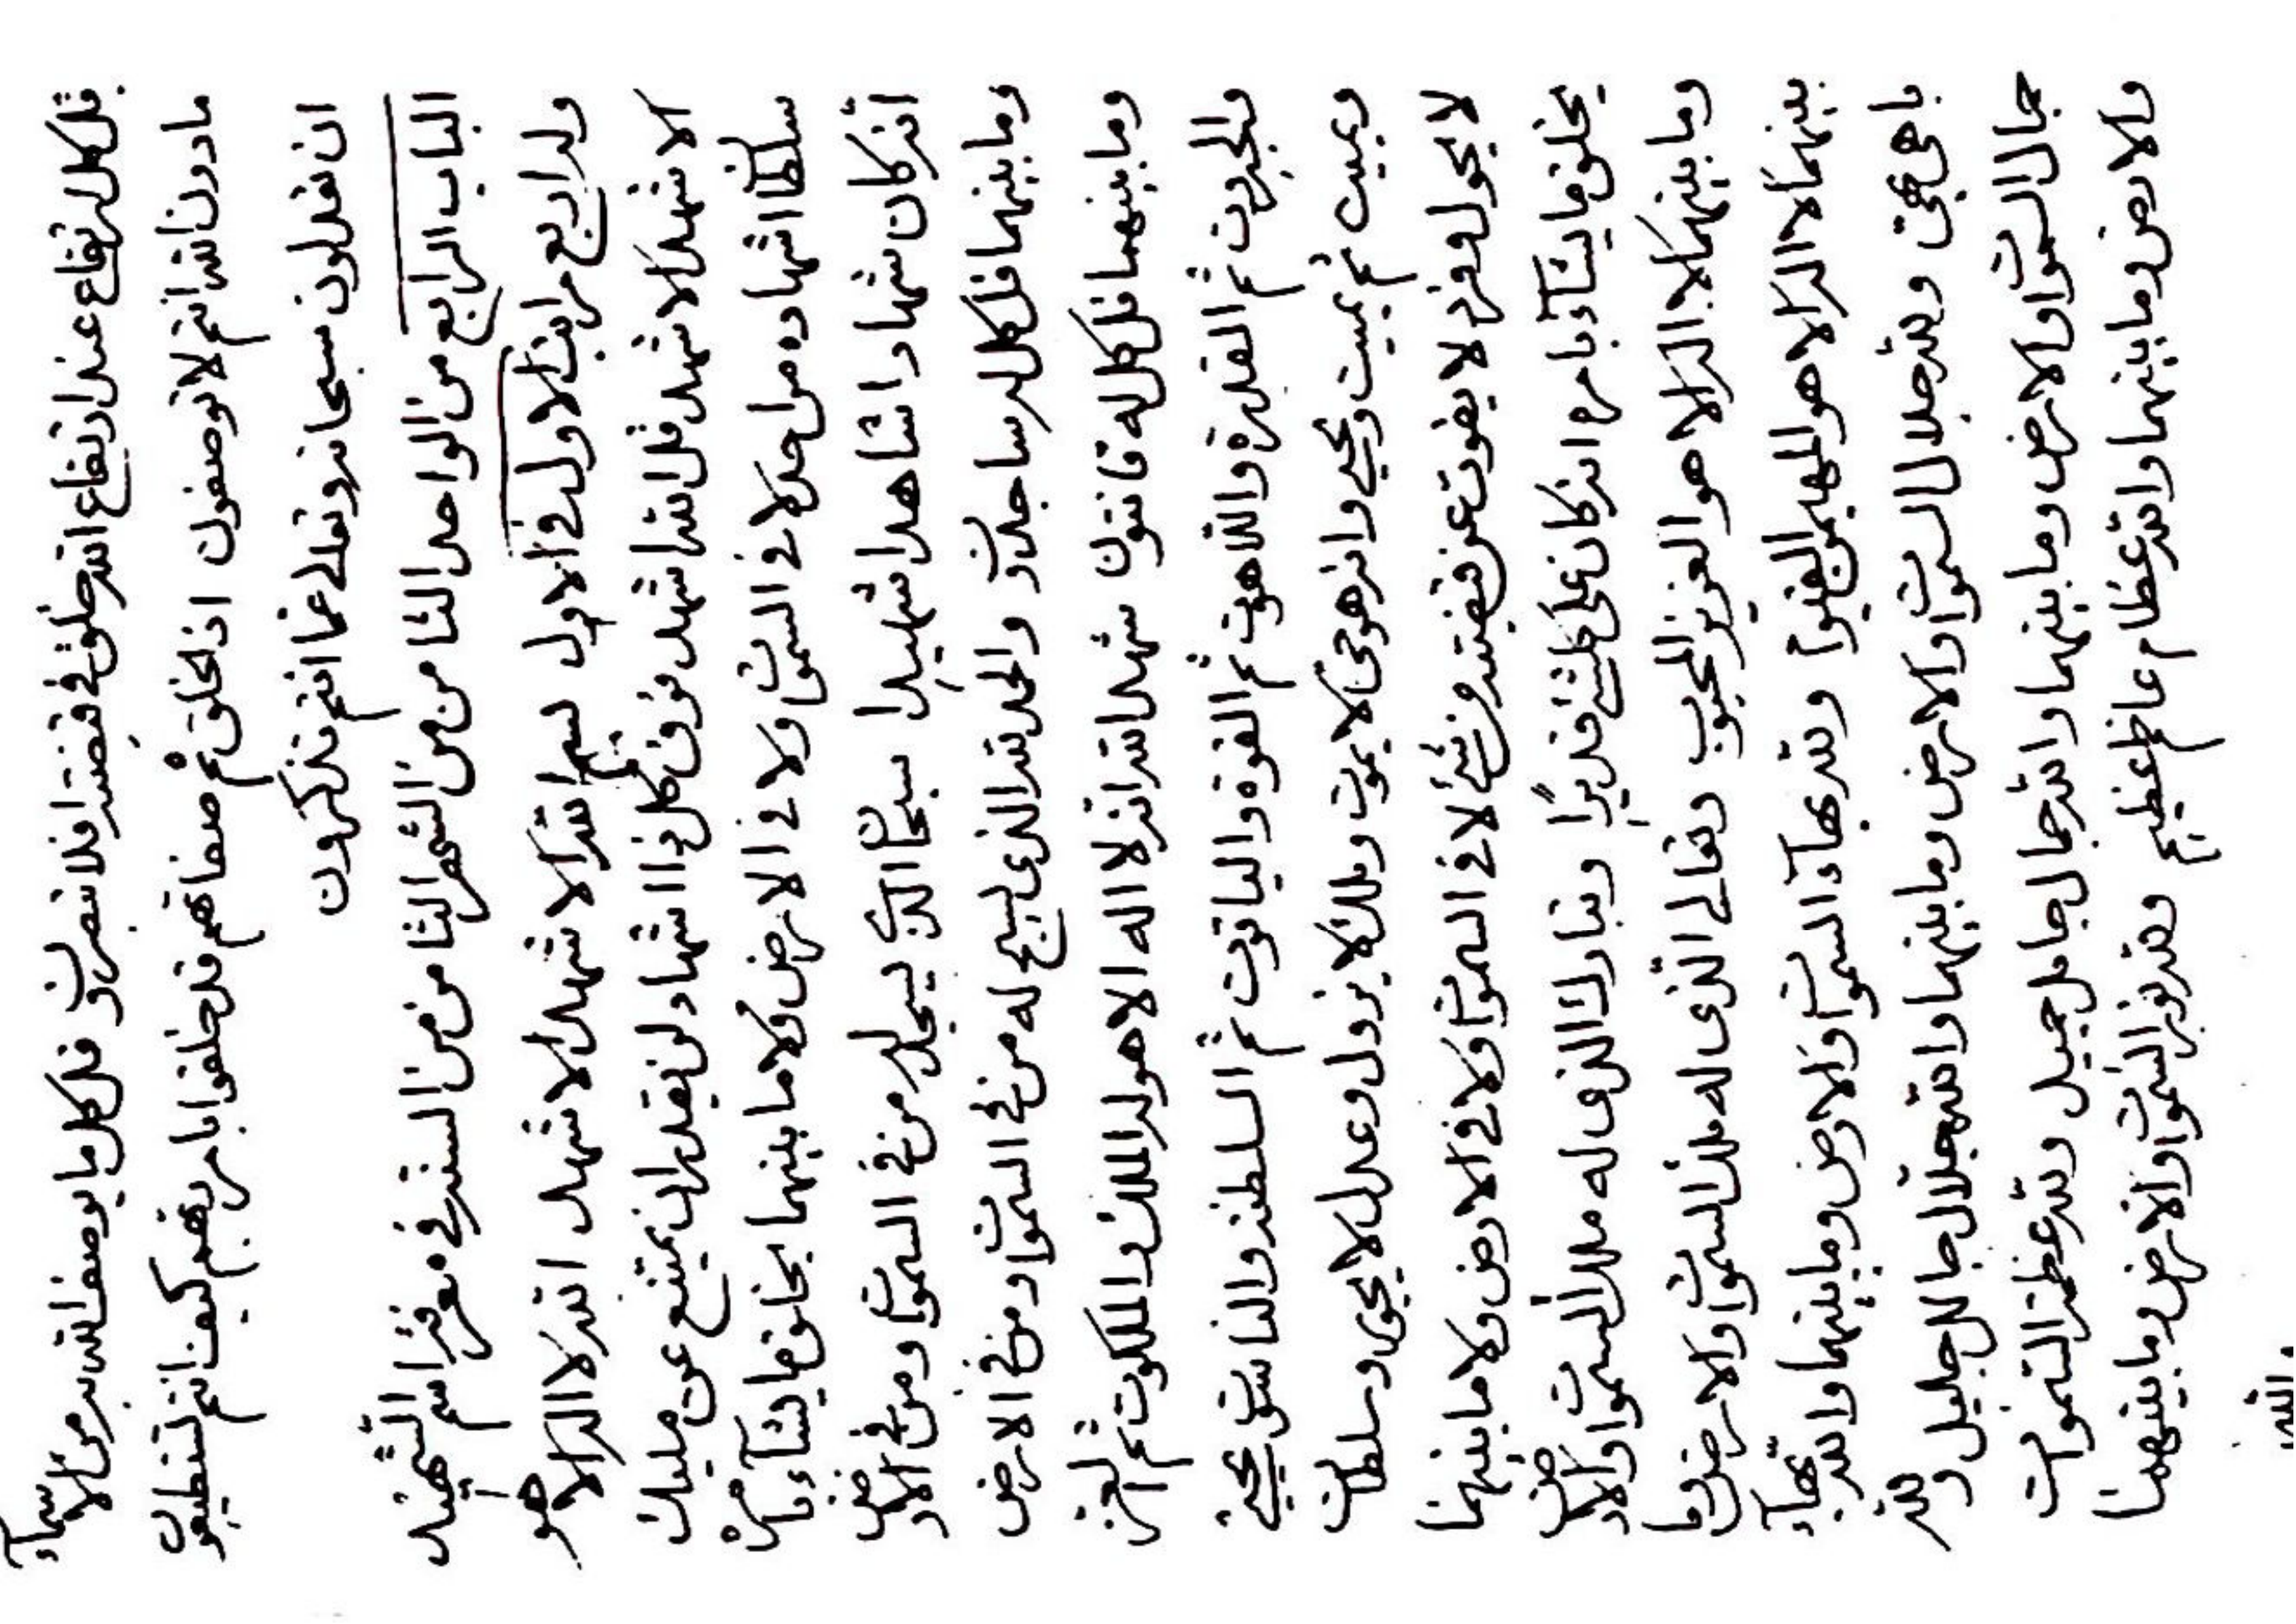 قل كل ارتفاع عند ارتفاع الله خلق في قبضته افلا تبصرون قل كل ما يوصف الله به من الاسمآء
ما دون الله انتم لا توصفون اذ الخلق ثم صفاتهم قد خلقوا بامر ربهم كيف انتم تستطيعون
ان تقولون سبحانه وتعالى عما انتم تذكرون
الباب الرابع من الواحد الثامن من الشهر الثامن من السنة في معرفة اسم الشهيد
وله اربع مراتب الاول في الاول بسم الله الاشهد الاشهد الله لا اله الا هو
الاشهد الاشهد قل الله اشهد فوق كل ذا اشهاد لن يقدر ان يمتنع عن مليك
سلطان اشهاده من احد لا في السموات ولا في الارض ولا ما بينهما يخلق ما يشآء بامره
انه كان شهادا شاهدا شهيدا سبحان الذي يسجد له من في السموات ومن في الارض
وما بينهما قل كل له ساجدون والحمد لله الذي يسبح له من في السموات ومن في الارض
وما بينهما قل كل له قانتون شهد الله انه لا اله الا هو له الملك والملكوت ثم العز
والجبروت ثم القدرة واللاهوت ثم القوة والياقوت ثم السلطنة والناسوت يحيي
ويميت ثم يميت ويحيي وانه هو حي لا يموت وملك لا يزول وعدل لا يجور وسلطان
لا يحول وفرد لا يفوت عن قبضته من شئ لا في السموات ولا في الارض ولا ما بينهما
يخلق ما يشآء بامره انه كان على كل شئ قديرا وتبارك الذي له ملك السموات والارض
وما بينهما لا اله الا هو العزيز المحبوب وتعالى الذي له ملك السموات والارض وما
بينهما لا اله الا هو المهيمن القيوم ولله بهآء السموات والارض وما بينهما والله بهآء
باهي بهي ولله جلال السموات والارض وما بينهما والله جلال جالل جليل ولله
جمال السموات والارض وما بينهما والله جمال جامل جميل ولله عظمة السموات
والارض وما بينهما والله عظام عاظم عظيم ولله نور السموات والارض وما بينهما
والله